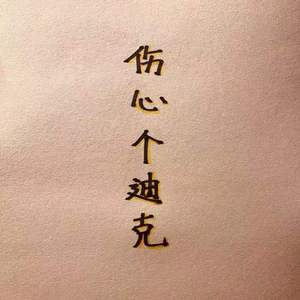 伤心个迪克